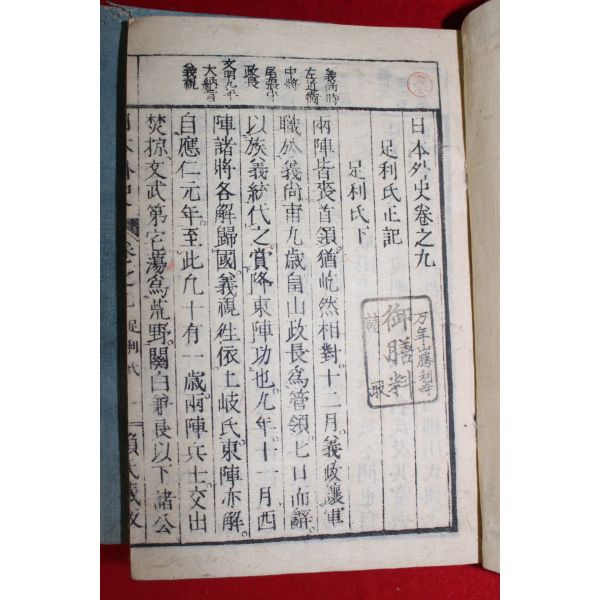 日本外史卷之九
足利氏正記
足利氏下
兩陣皆喪首領猶屹然相對十二月義政讓軍
職於義尚甫九歲畠山政長爲管領七日而辭
以族義統代之賞降東陣功也九年十一月西
陣諸將各解歸國義視徃依土岐氏東陣亦解
自應仁元年至此凡十有一歲兩陣兵士交出
焚掠文武第宅蕩爲荒野關白兼良以下諸公
義尚時
左近衛
中將
尾張守
政長
文明九年
大納言
義視
足利氏
賴氏藏板
万年山勝利寺
御膳料